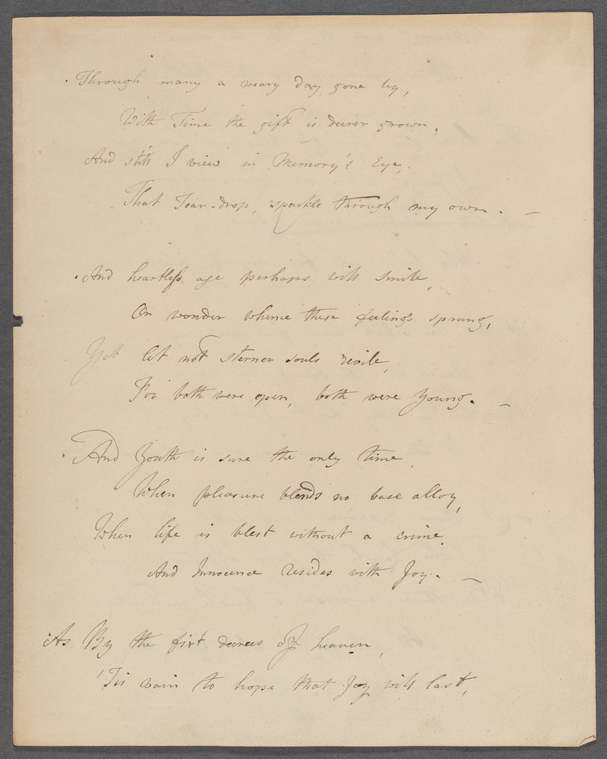 Through many a weary day gone by,
With Time the gift is dearer grown,
And still I view in Memory's Eye,
That Tear-drop, sparkle through my own. —
And heartless age perhaps will smile,
Or wonder whence these feelings sprung,
Yet let not sterner souls revile,
For both were open, both were young. —
And Youth is sure the only time,
When pleasure blends no base alloy,
When life is blest without a crime,
And Innocence resides with Joy. —
As By the fixt decrees of heaven,
'Tis vain to hope that Joy will last,